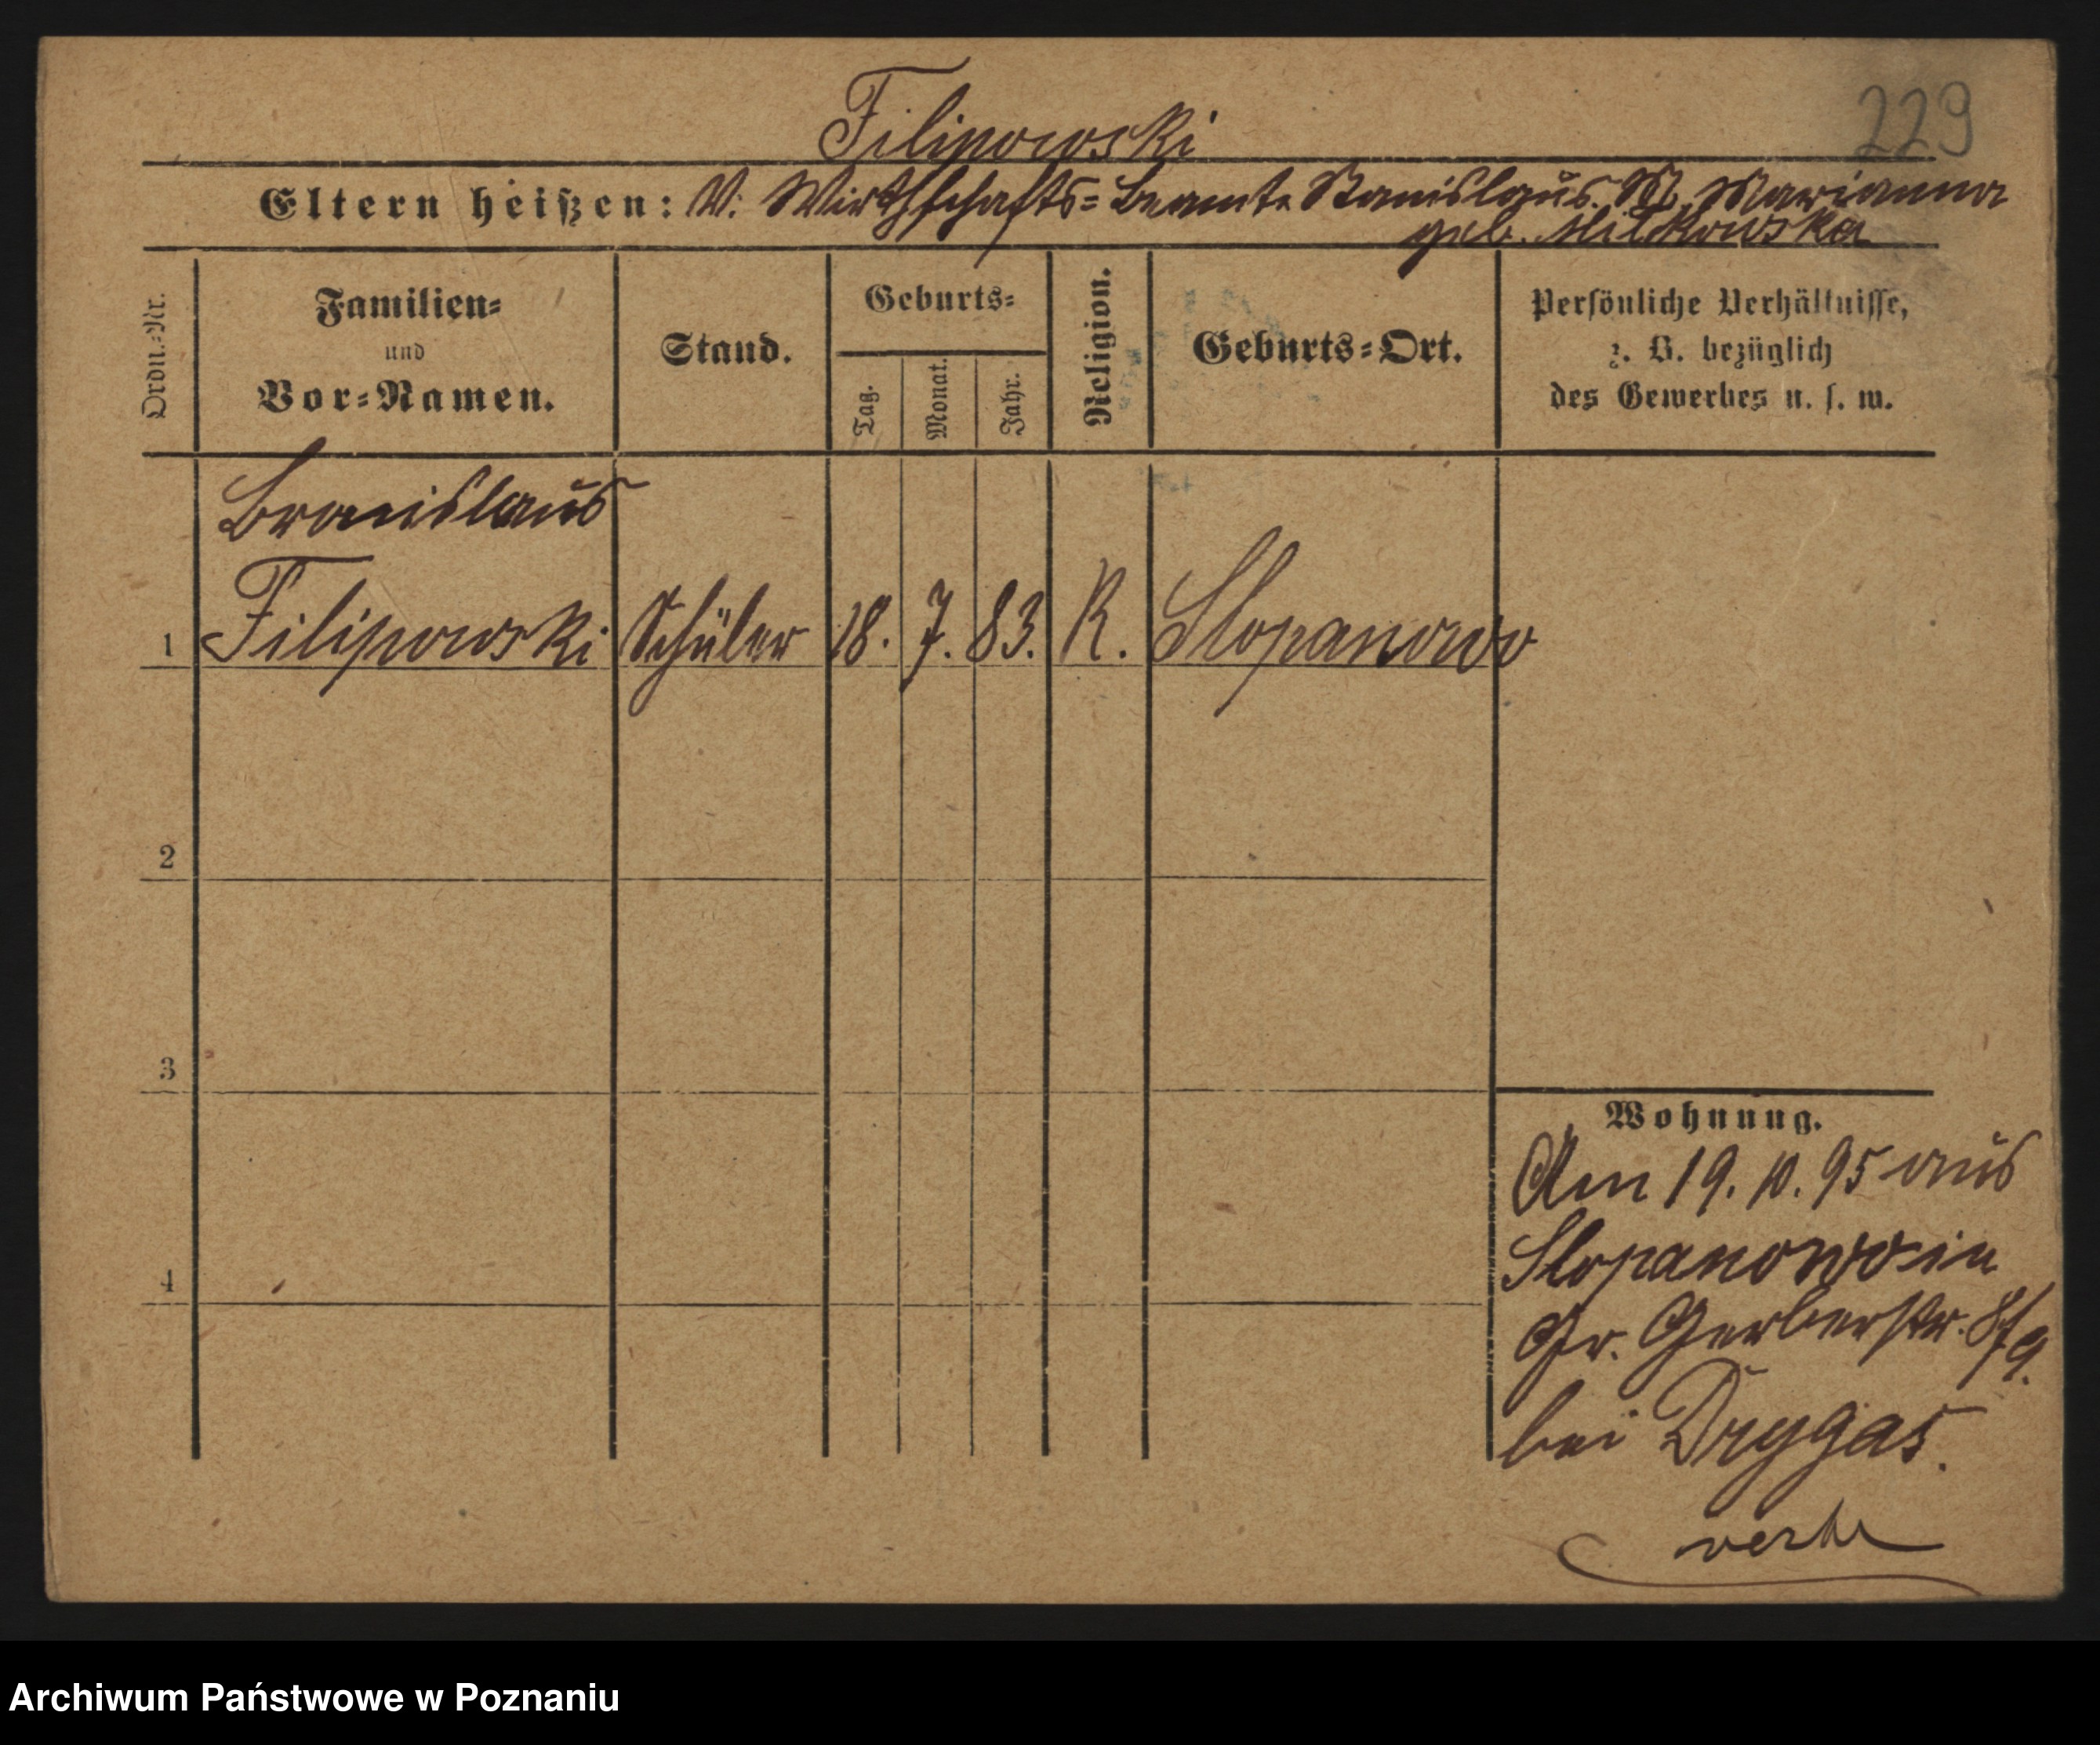 Filipowski
229
Eltern heißen: V. Wirthschafts=Beamte Stanislaus. M. Marianna
geb. Milkowska
Ordn.=Nr.
Familien=
und
Vor=Namen.
Stand.
Geburts=
Tag.
Monat.
Jahr.
Religion.
Geburts=Ort.
Persönliche Verhältnisse,
z. B. bezüglich
des Gewerbes u. s. w.
Bronislaus
1 Filipowski Schüler 18. 7. 83. K. Slopanowo
2
3
4
Wohnung.
Am 19. 10. 95 aus
Slopanowo in
Gr. Gerberstr. 8/9.
bei Drygas.
Archiwum Państwowe w Poznaniu